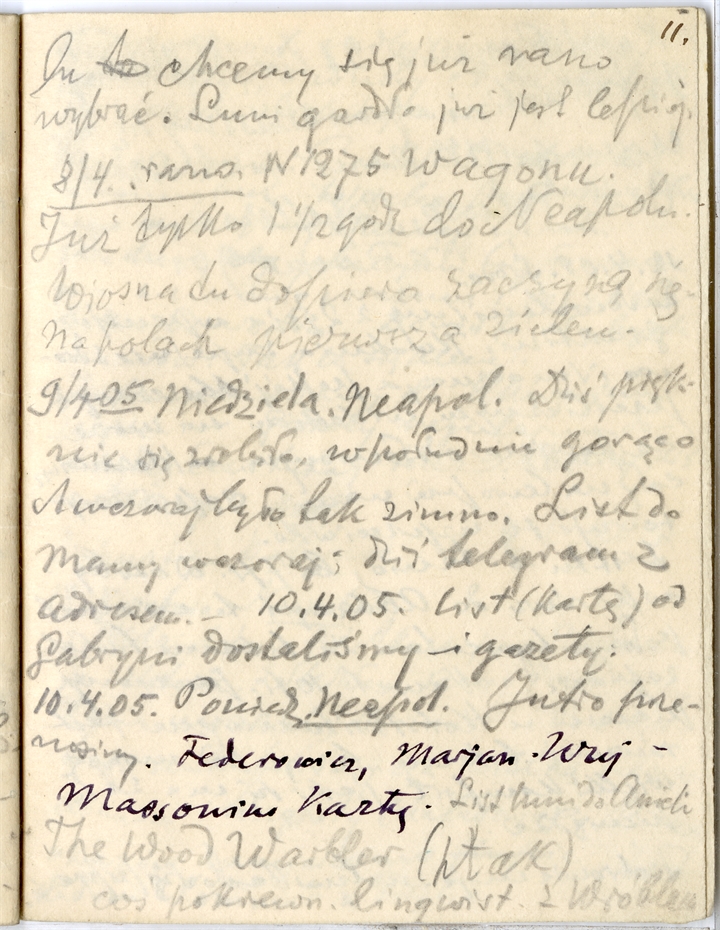 11.
tu to chcemy się już rano
wybrać. Luni gardło już jest lepiej.
8/4. rano. N 1275 Wagonu.
Już tylko 1 1/2 godz do Neapolu.
Wiosna tu dopiero zaczyna się.
Na polach pierwsza zieleń.
9/4 05 Niedziela. Neapol. Dziś pięk-
nie się zrobiło, w południe gorąco
A wczoraj było tak zimno. List do
Mamy wczoraj; dziś telegram z
adresem. — 10.4.05. List (Kartę) od
Gabryni dostaliśmy — i gazety.
10.4.05. Poniedz. Neapol. Jutro prze-
nosimy. Federowicz, Marjan.
Massonius Kartę. List Luni do Anieli
The Wood Warbler (ptak)
coś pokrewn. lingwist. z Wróblem